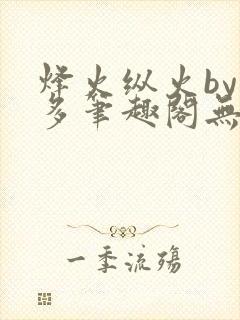 烽火纵火by
多笔趣阁無
一季流殇